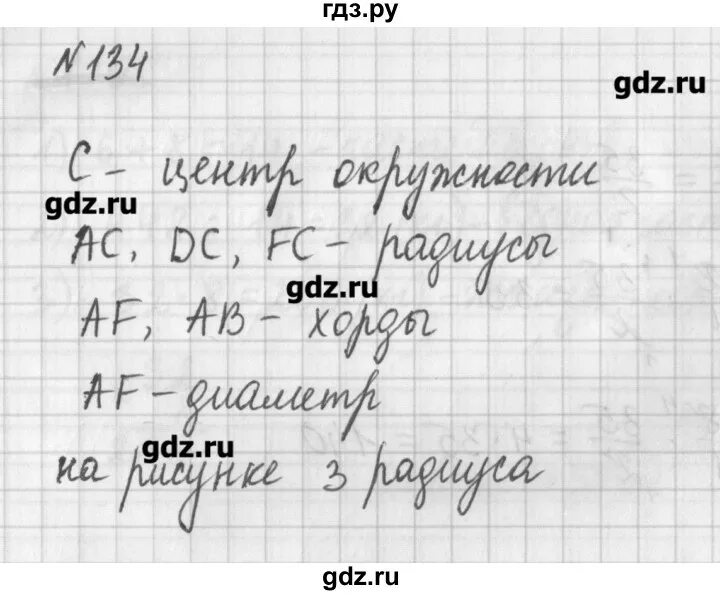 гдз.ру
№134
gdz.ru
С – центр окружности
gdz.ru
АС, DC, FC – радиусы
gdz.ru
AF, AB – хорды
AF – диаметр
gdz.ru
на рисунке 3 радиуса
gdz.ru